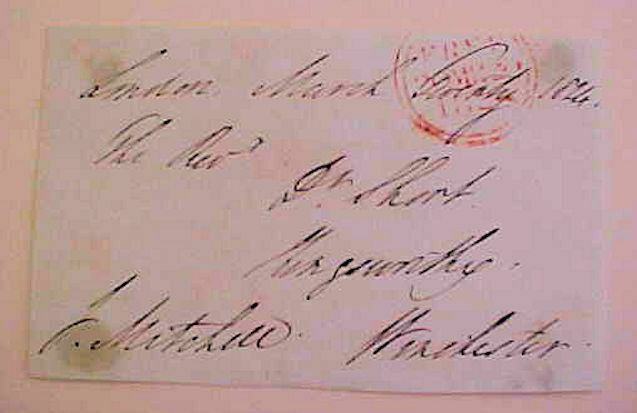 London March Twenty 1824.
The Revd
Dr. Short.
Kingsworthy.
J. Mitchell. Winchester.